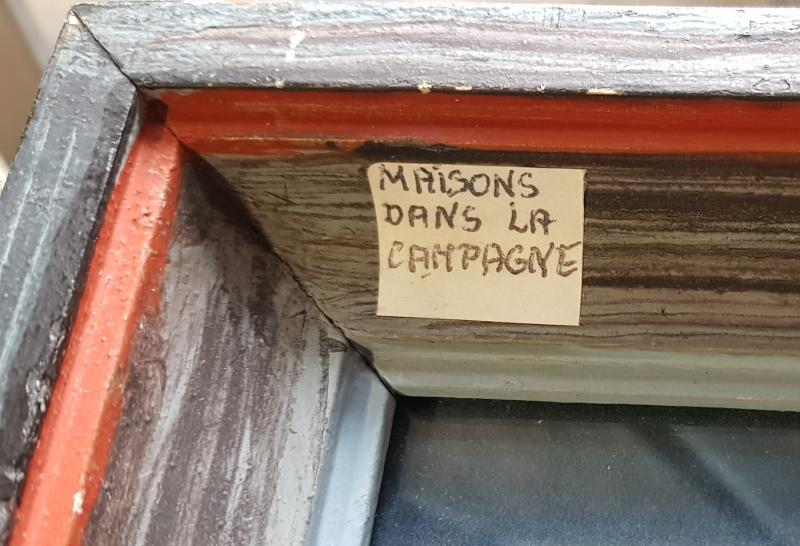 MAISONS
DANS LA
CAMPAGNE